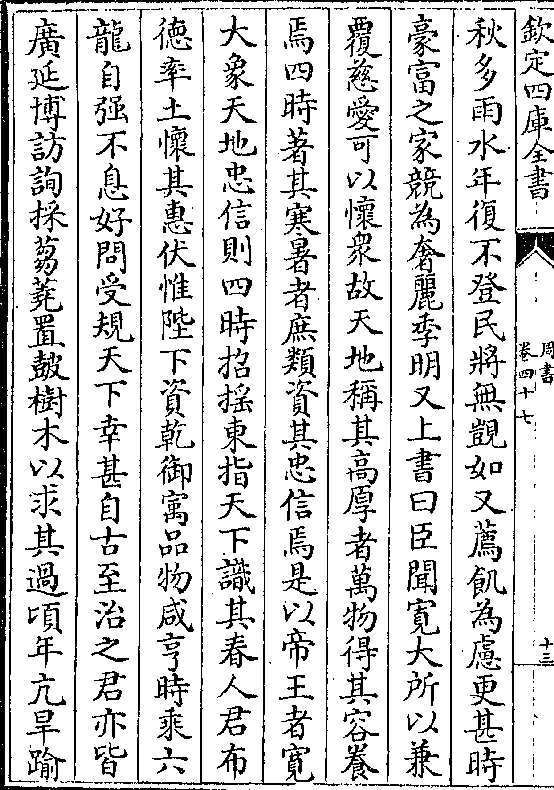 欽定四庫全書
周書
卷四十七
十三
秋多雨水年復不登民將無覬如又薦飢為慮更甚時
豪富之家競為奢麗季明又上書曰臣聞寛大所以兼
覆慈愛可以懷衆故天地稱其高厚者萬物得其容養
焉四時著其寒暑者庶類資其忠信焉是以帝王者寛
大象天地忠信則四時招搖東指天下識其春人君布
徳率土懷其惠伏惟陛下資乾御寓品物咸亨時乘六
龍自强不息好問受規天下幸甚自古至治之君亦皆
廣延博訪詢採芻蕘置鼓樹木以求其過頃年亢旱踰